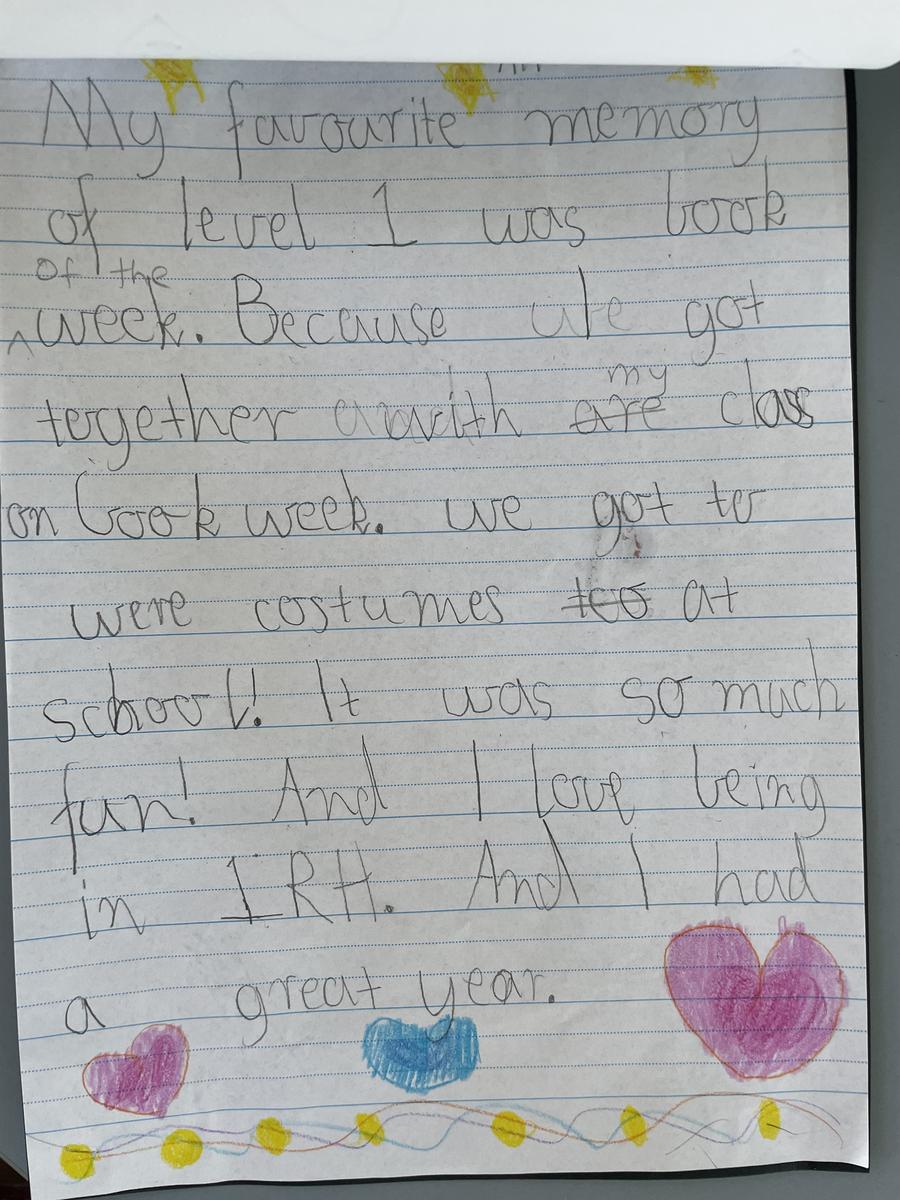 My favourite memory
of level 1 was book
of the
week. Because we got
my
together with are class
on book week. we got to
were costumes too at
school! It was so much
fun! And I love being
in 1RH. And I had
a great year.